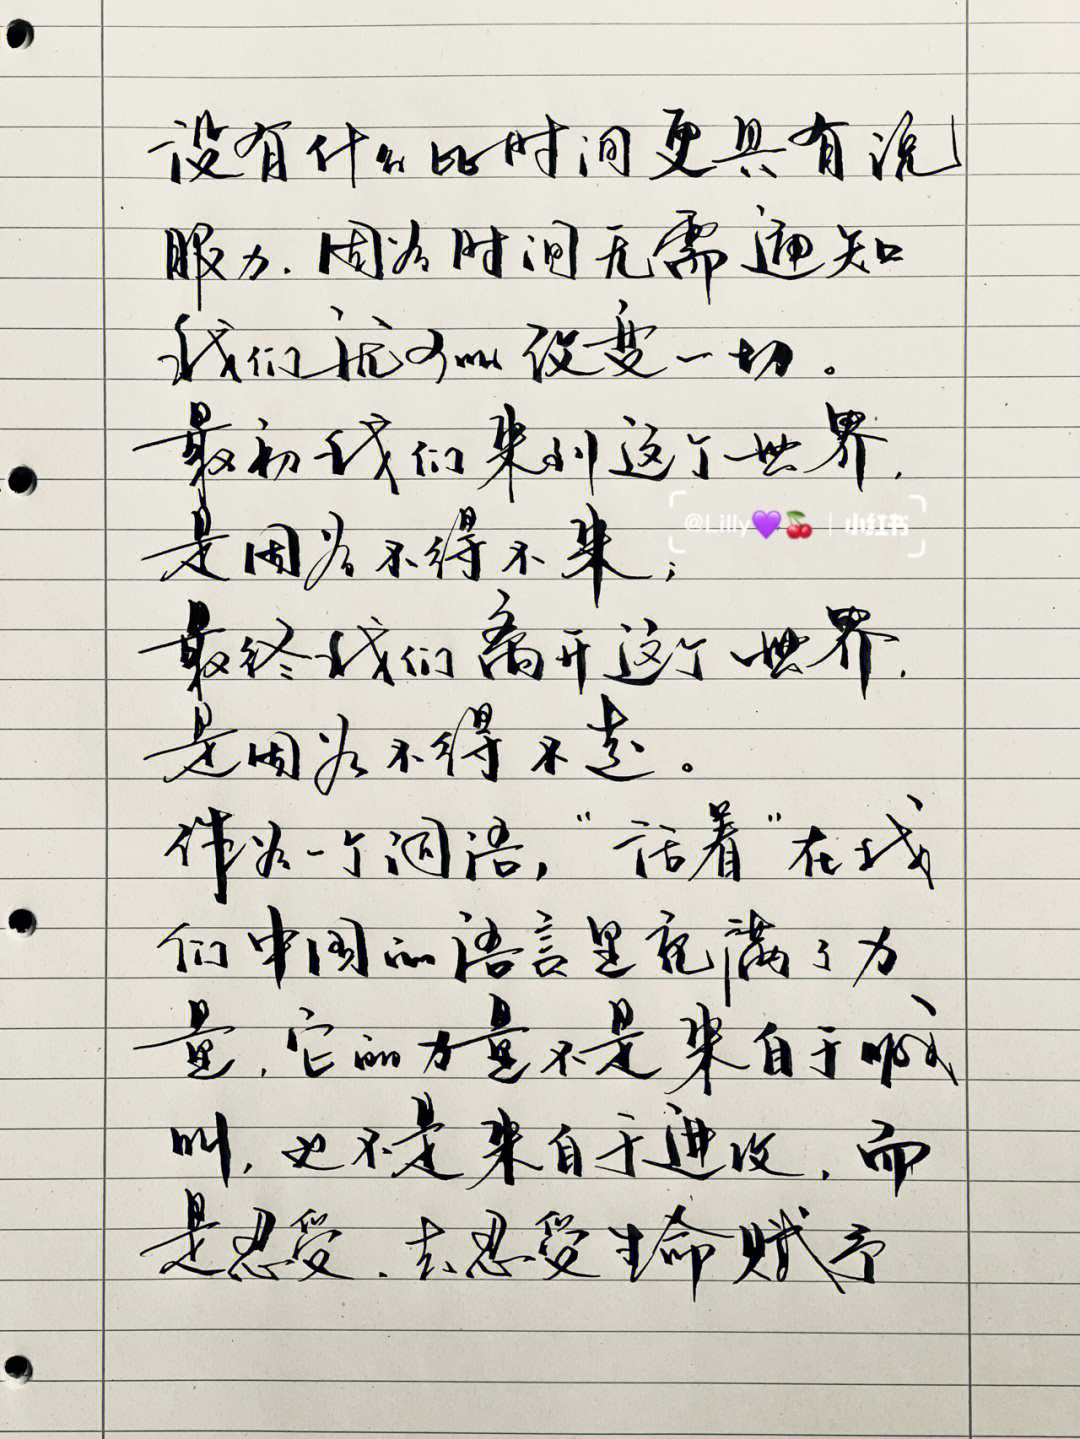 没有什么比时间更具有说
服力.因为时间无需通知
我们就可以改变一切。
最初我们来到这个世界,
是因为不得不来;
@Lilly💜🍒 | 小红书
最终我们离开这个世界,
是因为不得不走。
作为一个词语,“活着”在我
们中国的语言里充满了力
量,它的力量不是来自于喊
叫,也不是来自于进攻,而
是忍受.去忍受生命赋予